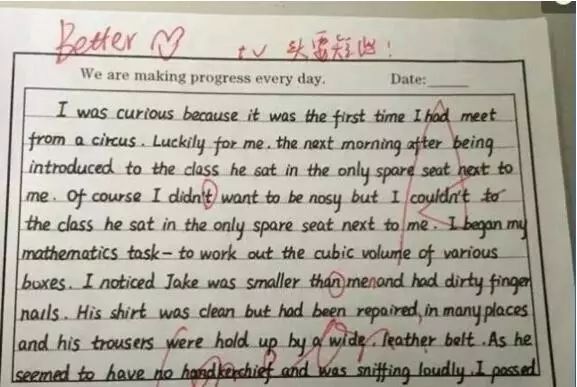 Better
t v 头要短出!
We are making progress every day. Date:
I was curious because it was the first time I had meet
from a circus. Luckily for me. the next morning after being
introduced to the class he sat in the only spare seat next to
me. Of course I didn't want to be nosy but I couldn't to
the class he sat in the only spare seat next to me. I began my
mathematics task- to work out the cubic volume of various
boxes. I noticed Jake was smaller than menand had dirty finger
nails. His shirt was clean but had been repaired, in many places
and his trousers were hold up by a wide, leather belt. As he
seemed to have no handkerchief and was sniffing loudly. I passed